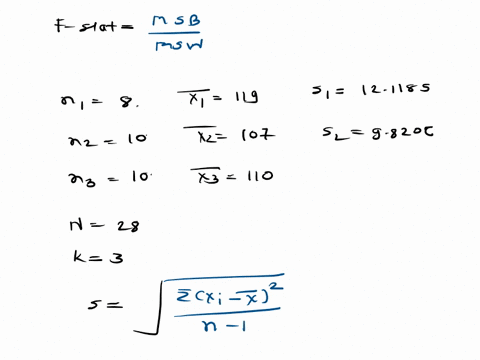 F-stat = MSB / MSW
n₁ = 8. x̄₁ = 119 s₁ = 12.1185
n₂ = 10 x̄₂ = 107 s₂ = 9.820
n₃ = 10 x̄₃ = 110
N = 28
k = 3
s = √(Σ(xᵢ - x̄)² / n - 1)